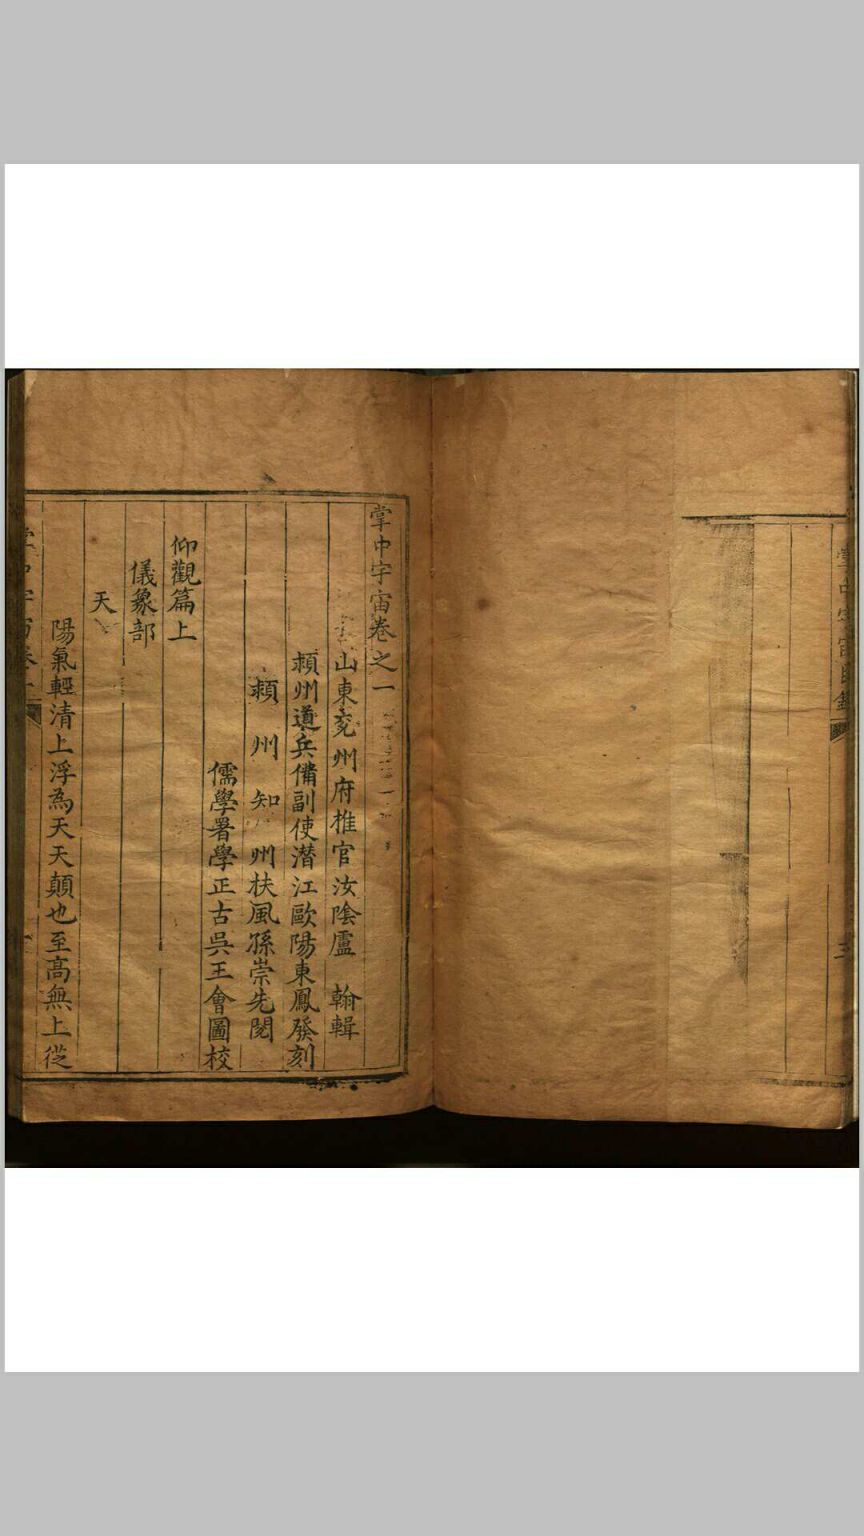 掌中宇宙卷之一
山東兖州府推官汝陰盧　翰輯
潁州道兵備副使潛江歐陽東鳳發刻
潁州知州扶風孫崇先閱
儒學署學正古吳王會圖校
仰觀篇上
儀象部
天
陽氣輕清上浮為天天顛也至高無上從